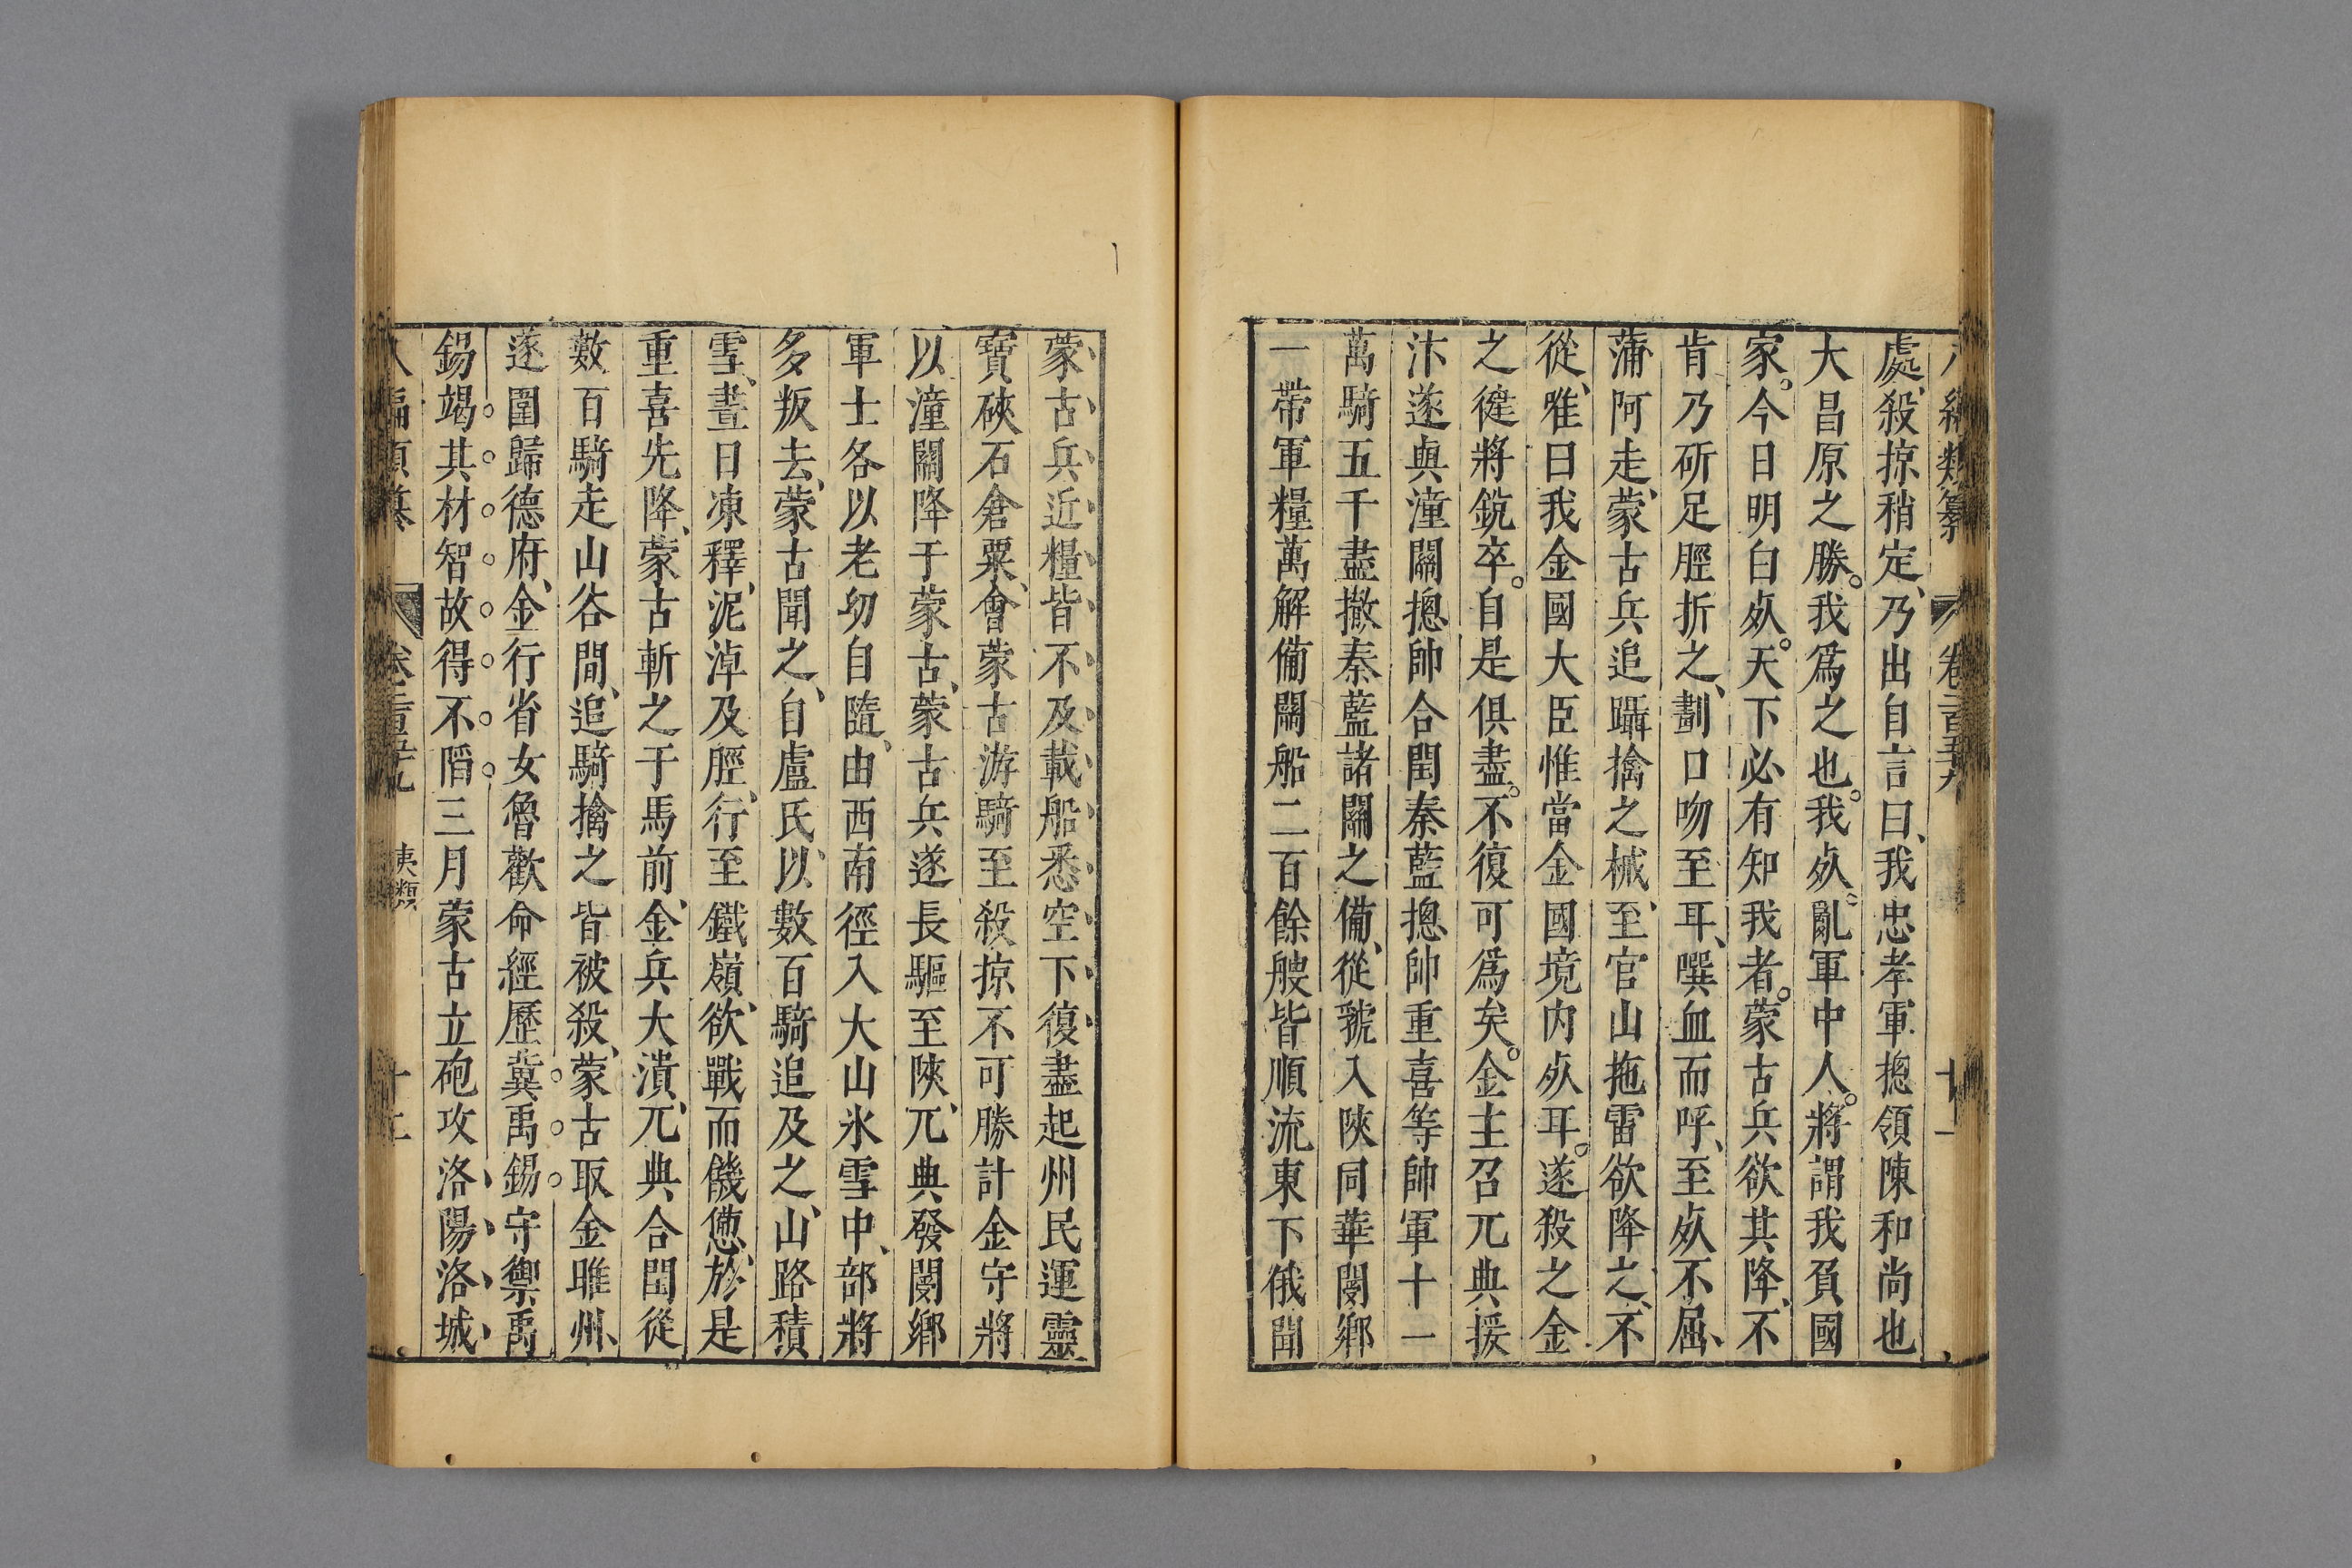 處殺掠稍定乃出自言曰我忠孝軍摠領陳和尚也
大昌原之勝我爲之也我死亂軍中人將謂我負國
家今日明白死天下必有知我者蒙古兵欲其降不
肯乃斫足脛折之劃口吻至耳噀血而呼至死不屈
蒲阿走蒙古兵追躡擒之械至官山拖雷欲降之不
從唯曰我金國大臣惟當金國境内死耳遂殺之金
之健將銳卒自是俱盡不復可爲矣金主召兀典援
汴遂與潼關摠帥合閏秦藍摠帥重喜等帥軍十一
萬騎五千盡撤秦藍諸關之備從虢入陝同華閿鄉
一帶軍糧萬斛備關船二百餘艘皆順流東下俄聞
蒙古兵近糧皆不及載船悉空下復盡起州民運靈
寶硤石倉粟會蒙古游騎至殺掠不可勝計金守將
以潼關降于蒙古蒙古兵遂長驅至陝兀典發閿鄉
軍士各以老幼自隨由西南徑入大山氷雪中部將
多叛去蒙古聞之自盧氏以數百騎追及之山路積
雪晝日凍釋泥淖及脛行至鐵嶺欲戰而饑憊於是
重喜先降蒙古斬之于馬前金兵大潰兀典合閏從
數百騎走山谷間追騎擒之皆被殺蒙古取金睢州
遂圍歸德府金行省女魯歡命經歷冀禹錫守禦禹
錫竭其材智故得不陷三月蒙古立砲攻洛陽洛城